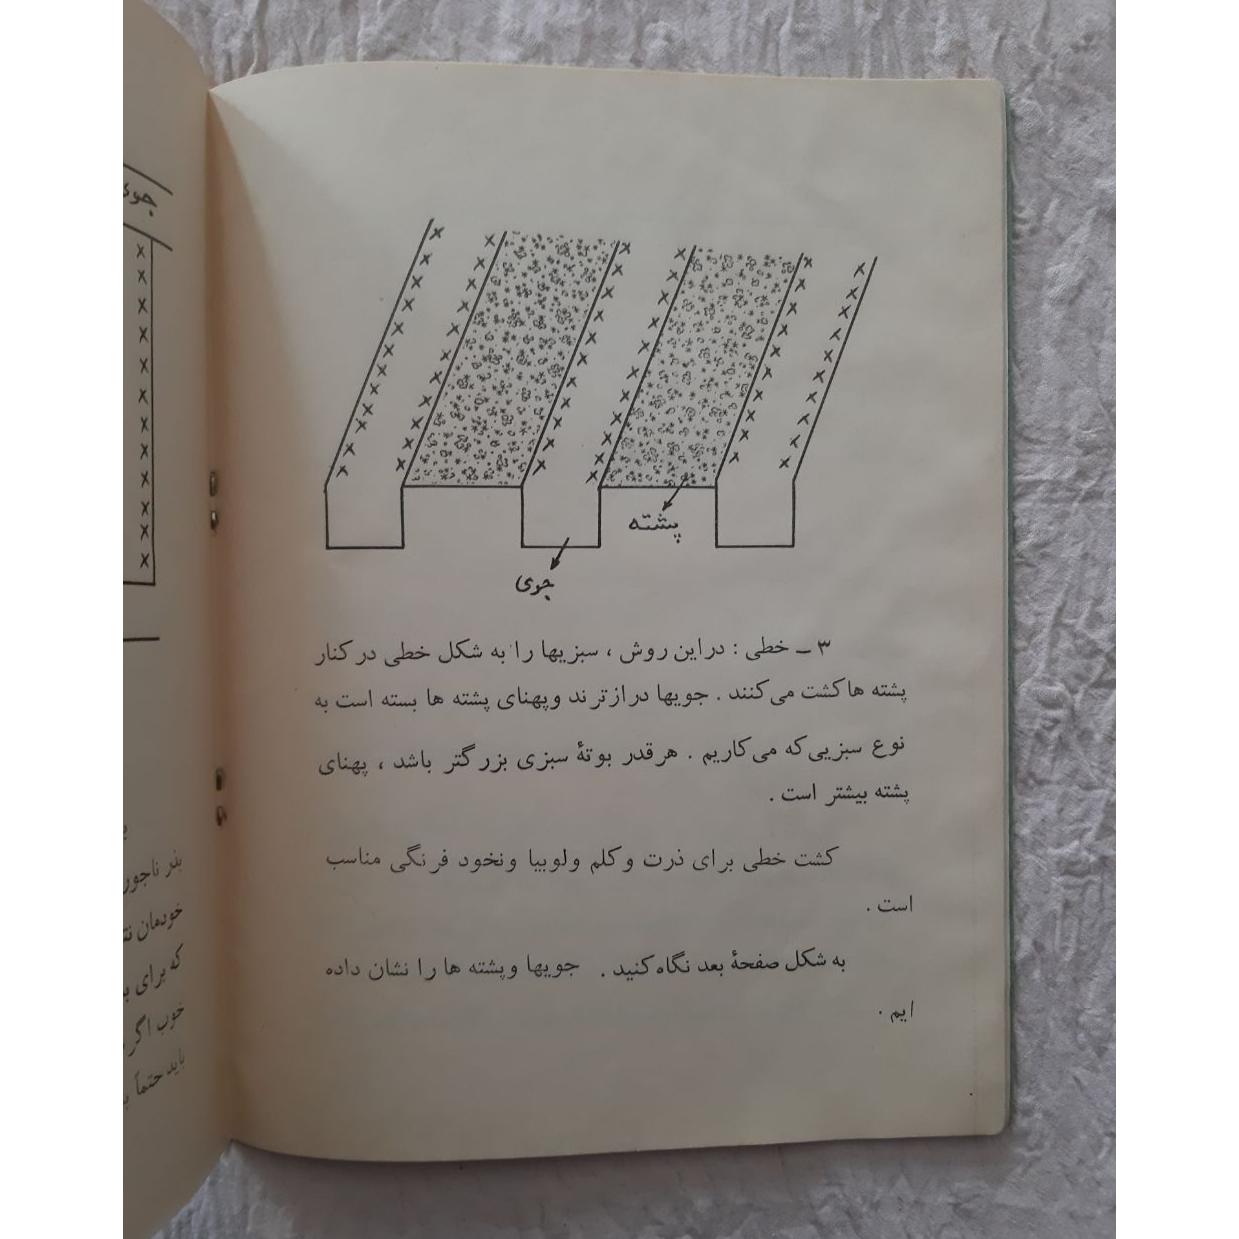 پشته
جوی
۳ ــ خطی : دراین روش ، سبزیها را به شکل خطی در کنار
پشته ها کشت می‌کنند . جویها درازترند و پهنای پشته ها بسته است به
نوع سبزیی که می‌کاریم . هر قدر بوتهٔ سبزی بزرگتر باشد ، پهنای
پشته بیشتر است .
کشت خطی برای ذرت و کلم و لوبیا و نخود فرنگی مناسب
است .
به شکل صفحهٔ بعد نگاه کنید . جویها و پشته ها را نشان داده
ایم .
جوی
بذر ناجور
خودمان
که برای
خوب اگر
باید حتماً